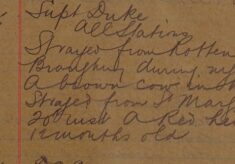 Supt Duke
All Stations
Strayed from Rotten
during
A brown cow in
Strayed from St Mary
20th inst A Red
12 months old